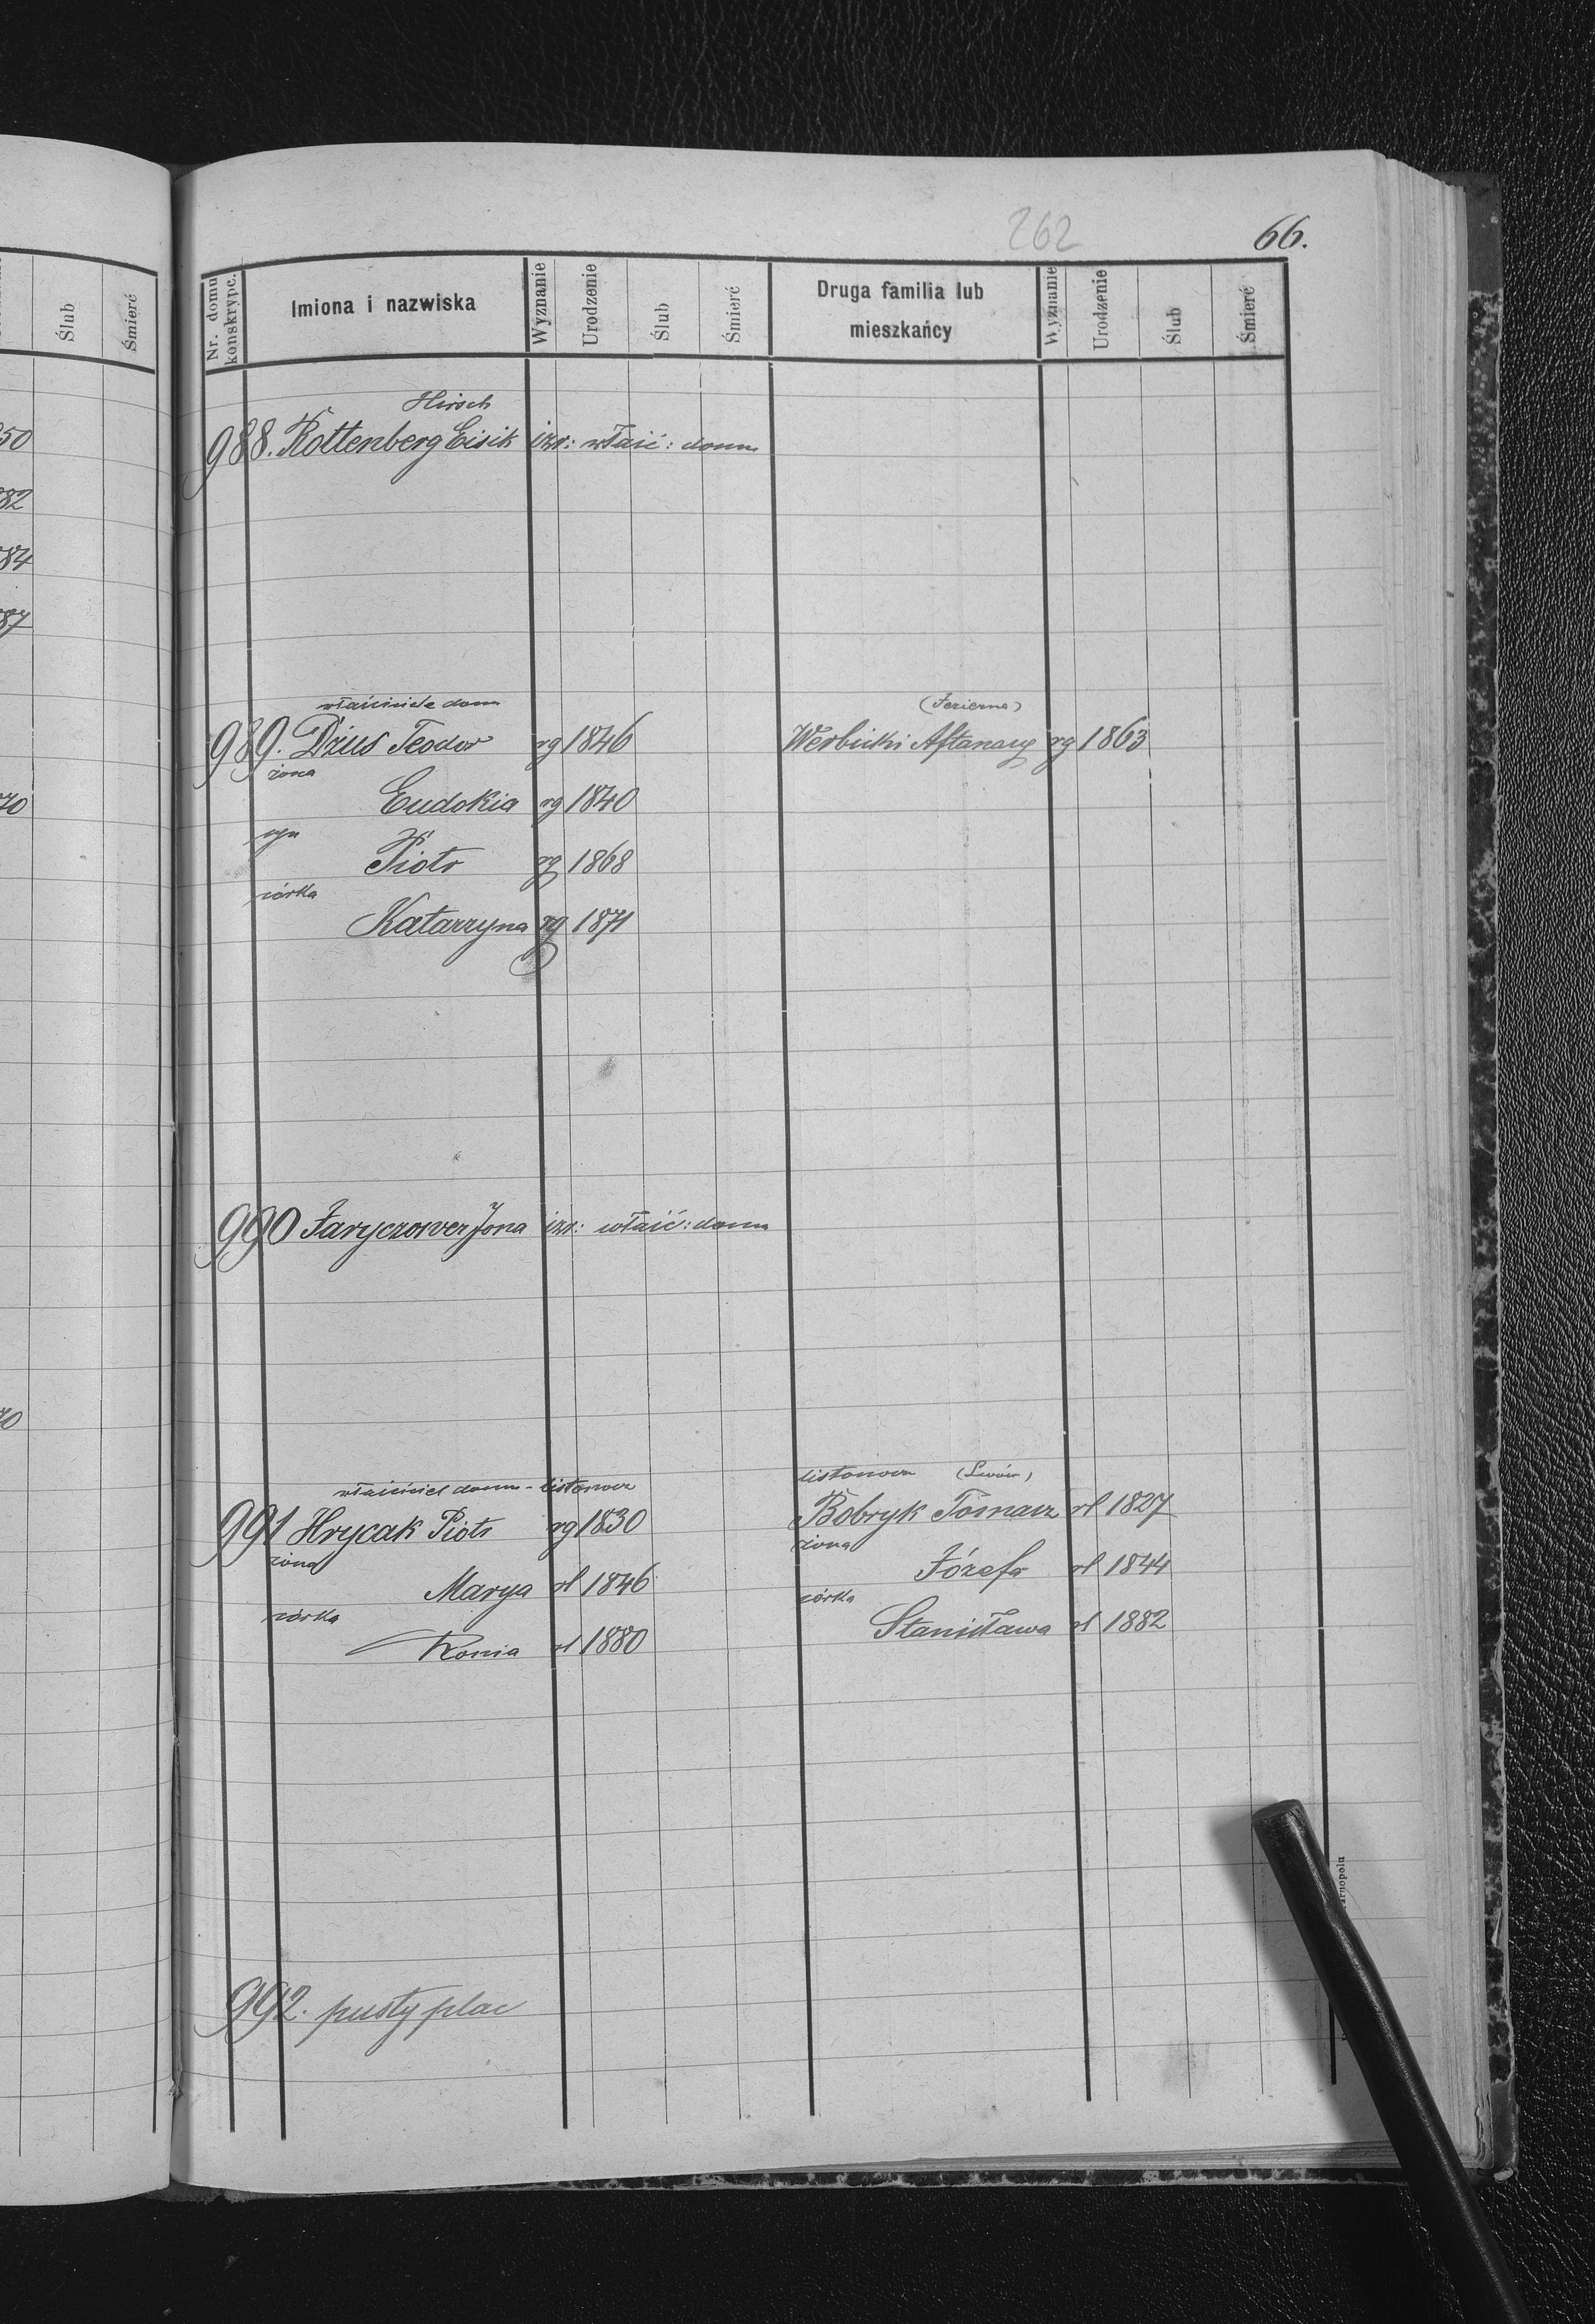 262
66.
Ślub
Śmierć
Nr. domu konskrypc.
Imiona i nazwiska
Wyznanie
Urodzenie
Ślub
Śmierć
Druga familia lub mieszkańcy
Wyznanie
Urodzenie
Ślub
Śmierć
50
82
84
87
70
70
Hirsch
988. Rottenberg Eisik izr: właść: domu
właściciele domu
(Jezierna)
989. Dzius Teodor rg 1846
Werbicki Aftanazy rg 1863
żona
Eudokia rg 1840
syn
Piotr rg 1868
córka
Katarzyna rg 1871
990 Jaryczower Jona izr: właść: domu
właściciel domu - listonosz
listonosz (Lwów)
991 Hrycak Piotr rg 1830
Bobryk Tomasz rl 1827
żona
Marya rl 1846
żona
Józefa rl 1844
córka
Romia rl 1880
córka
Stanisława rl 1882
992. pusty plac
arnopolu